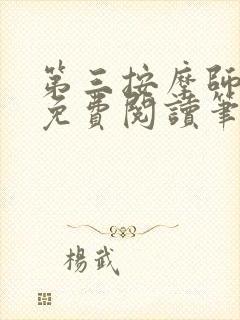 第三按摩師
免費閱讀筆
楊武